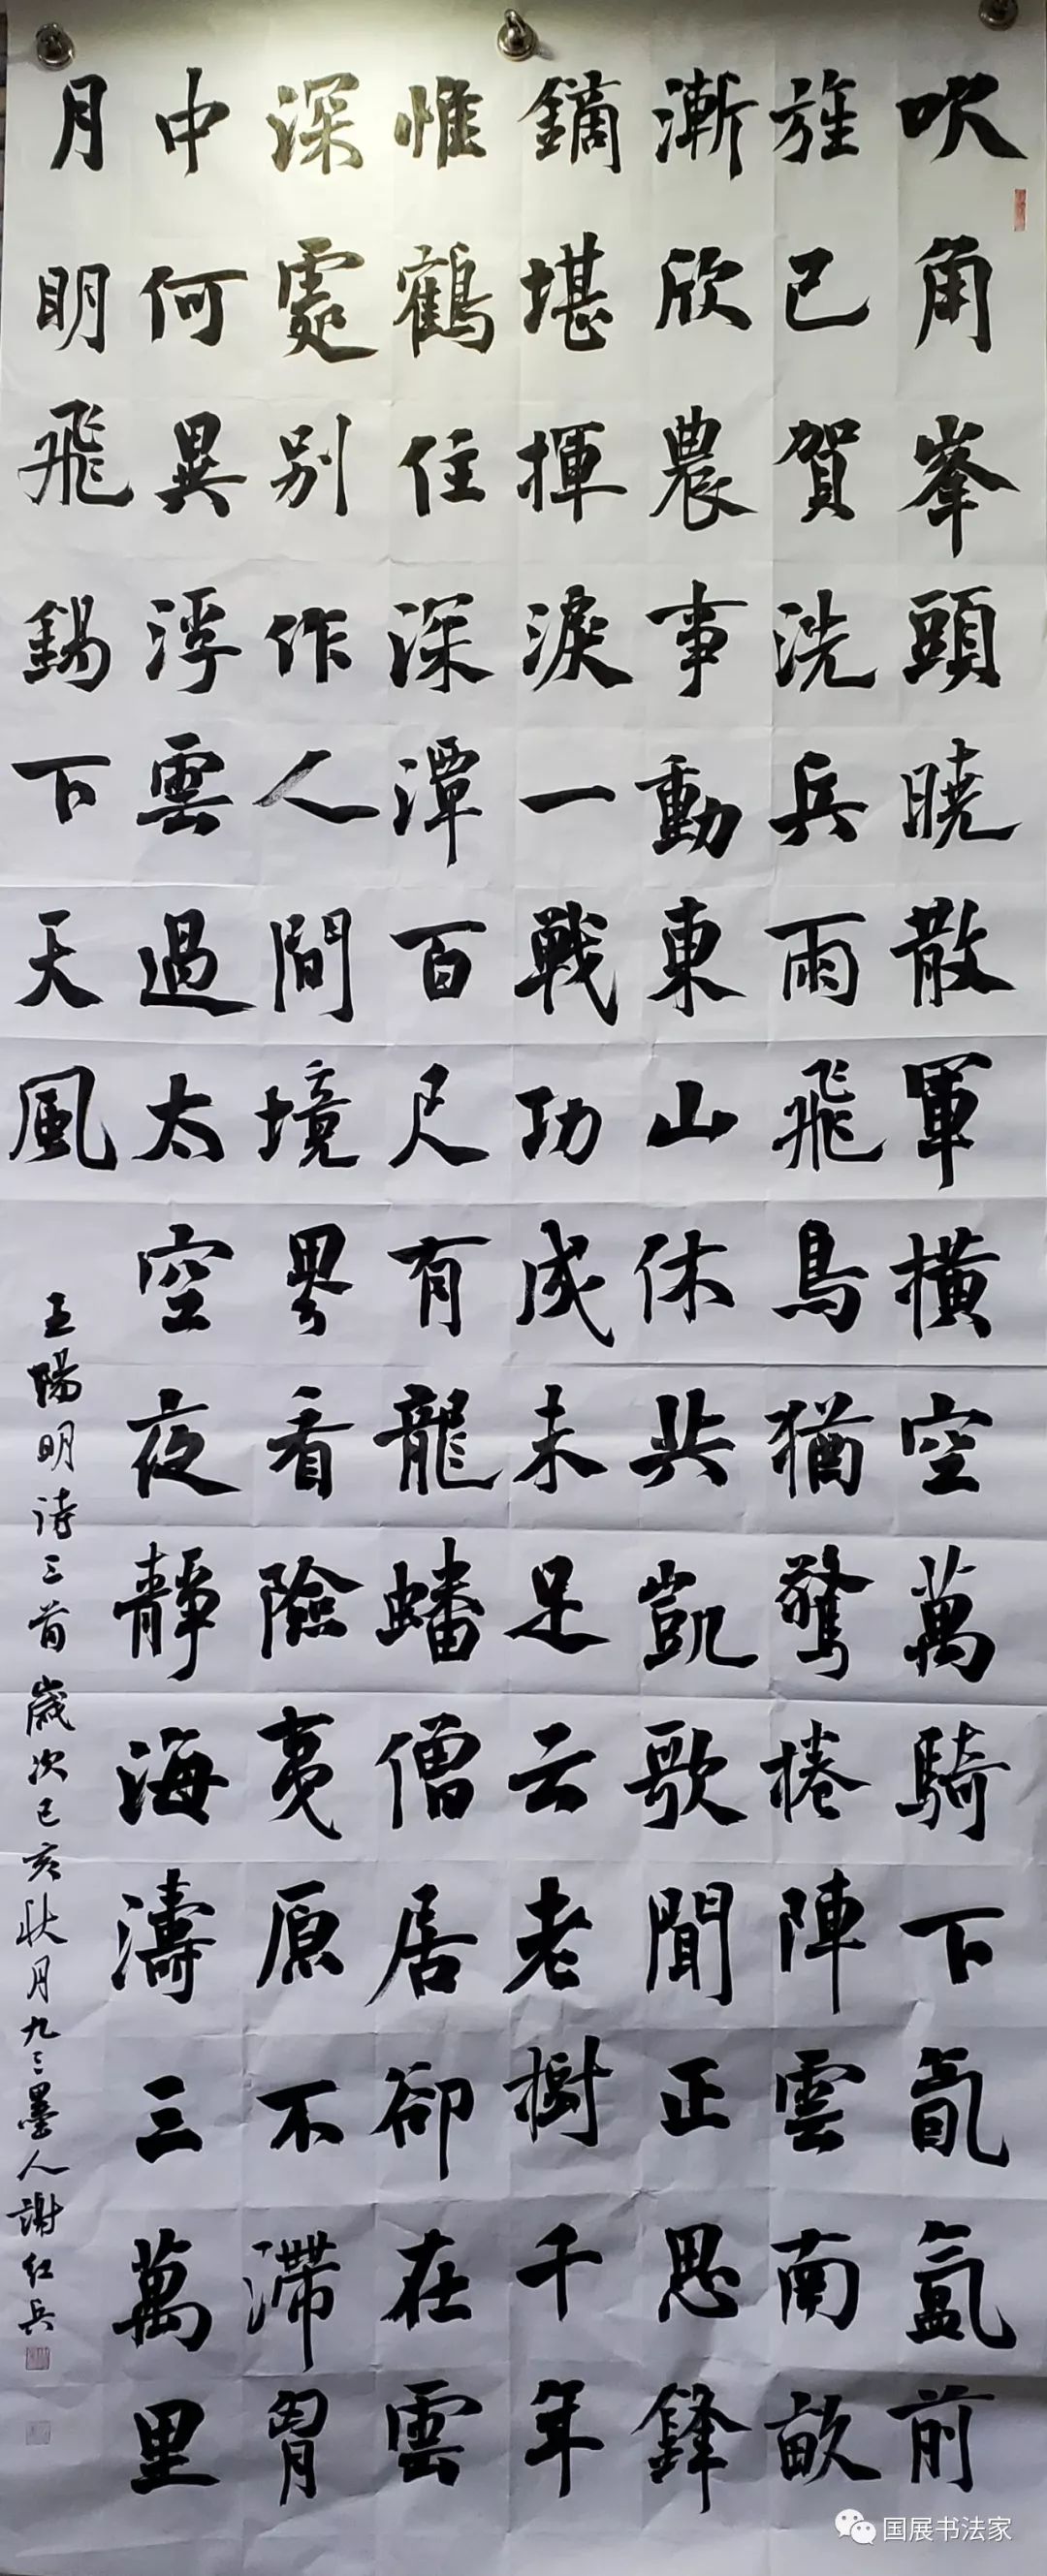 吹角峯頭曉散軍橫空萬騎下氤氳前
旌已賀洗兵雨飛鳥猶驚捲陣雲南畝
漸欣農事動東山休共凱歌聞正思鋒
鏑堪揮淚一戰功成未足云老樹千年
惟鶴住深潭百尺有龍蟠僧居卻在雲
深處別作人間境界看險夷原不滯胷
中何異浮雲過太空夜靜海濤三萬里
月明飛錫下天風
王陽明诗三首歲次己亥秋月九三墨人謝红兵
国展书法家